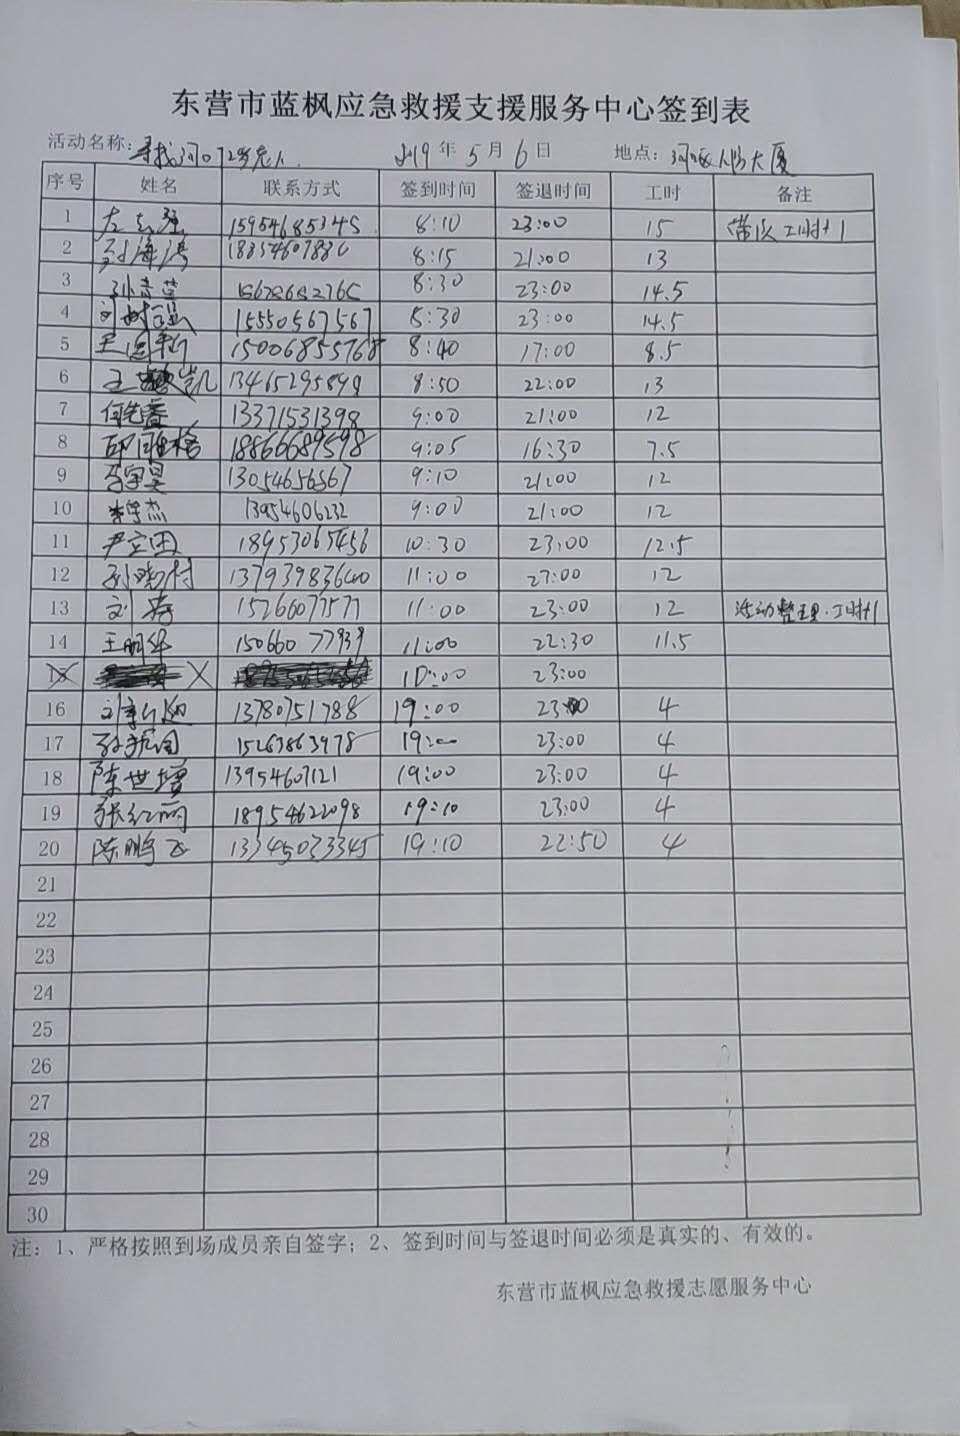 东营市蓝枫应急救援支援服务中心签到表
活动名称：寻找河口72岁老人 2019年5月6日 地点：河口人防大厦
序号 姓名 联系方式 签到时间 签退时间 工时 备注
1 左志强 15954685345 8:10 23:00 15 带队工时+1
2 刘海涛 18354607830 8:15 21:00 13
3 8:30 23:00 14.5
4 刘树强 15550567567 8:30 23:00 14.5
5 15006855768 8:40 17:00 8.5
6 王 凯 13465295899 8:50 22:00 13
7 何先春 13371531398 9:00 21:00 12
8 邱雅格 18866689598 9:05 16:30 7.5
9 13054656567 9:10 21:00 12
10 李学杰 13954606232 9:00 21:00 12
11 尹立田 18953065456 10:30 23:00 12.5
12 孙晓村 13793983600 11:00 23:00 12
13 刘 15266077577 11:00 23:00 12 活动整理.工时+1
14 王鹏华 15066077939 11:00 22:30 11.5
15 10:00 23:00
16 13780751788 19:00 23:00 4
17 15263863978 19:00 23:00 4
18 陈世增 13954607121 19:00 23:00 4
19 张红丽 18954622098 19:10 23:00 4
20 陈鹏飞 13345033345 19:10 22:50 4
21
22
23
24
25
26
27
28
29
30
注：1、严格按照到场成员亲自签字；2、签到时间与签退时间必须是真实的、有效的。
东营市蓝枫应急救援志愿服务中心